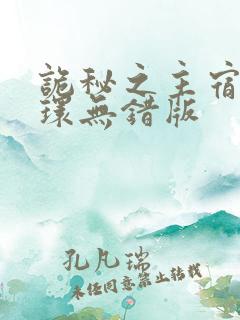 詭秘之主宿
環無錯版
孔凡瑞
未經同意禁止轉載